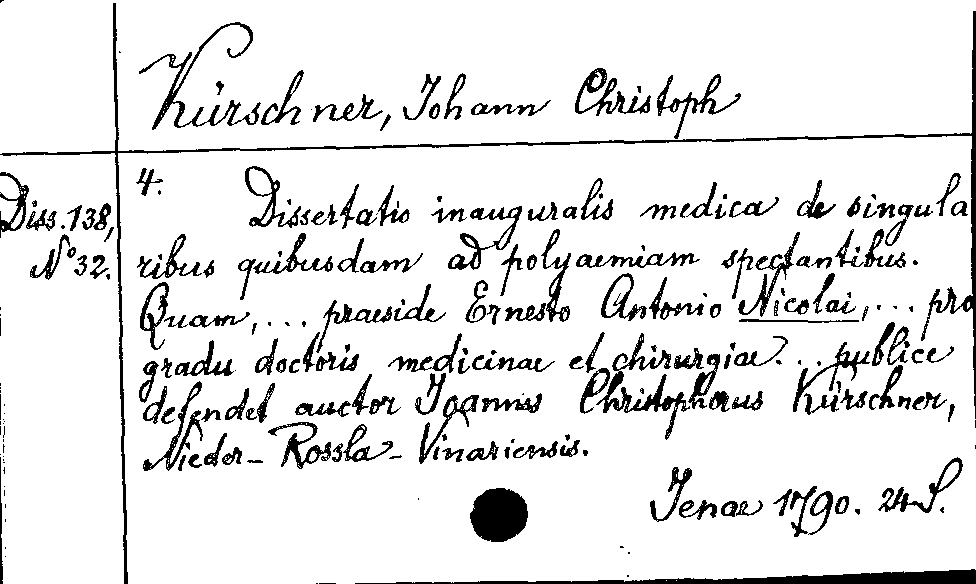 Kürschner, Johann Christoph
Diss. 138,
No 32.
4.
Dissertatio inauguralis medica de singula
ribus quibusdam ad polyaemiam spectantibus.
Quam, ... praeside Ernesto Antonio Nicolai, ... pro
gradu doctoris medicinae et chirurgiae ... publice
defendet auctor Joannes Christophorus Kürschner,
Nieder-Rossla-Vinariensis.
Jenae 1790. 24 S.